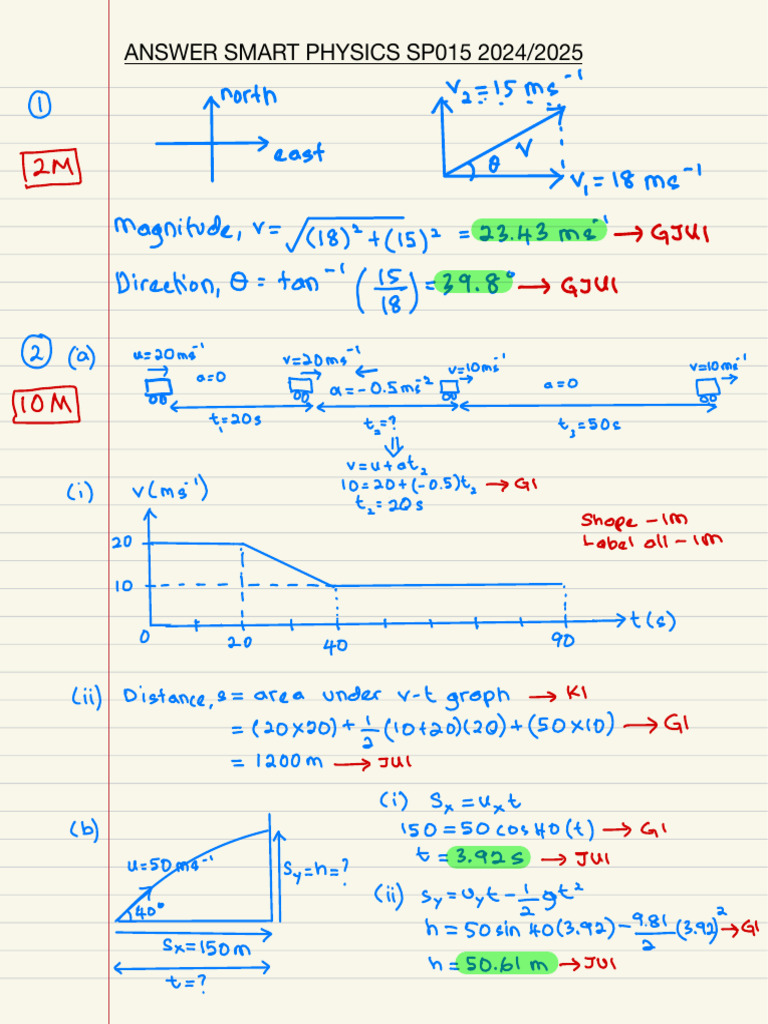 ANSWER SMART PHYSICS SP015 2024/2025
① north east v₂ = 15 ms⁻¹
2M θ v v₁ = 18 ms⁻¹
Magnitude, v = √(18)² + (15)² = 23.43 ms⁻¹ → GJU1
Direction, θ = tan⁻¹ (15/18) = 39.8° → GJU1
② (a) u=20ms⁻¹ v=20ms⁻¹ v=10ms⁻¹ v=10ms⁻¹
10M a=0 a=-0.5ms⁻² a=0
t₁=20s t₂=? t₃=50s
⇓
v=u+at₂
10=20+(-0.5)t₂ → G1
t₂=20s
(i) v(ms⁻¹)
Shape - 1M
Label all - 1M
20
10
0 20 40 90 t(s)
(ii) Distance, s = area under v-t graph → K1
= (20×20)+½(10+20)(20)+(50×10) → G1
= 1200m → JU1
(b) u=50ms⁻¹
40°
Sy=h=?
Sx=150m
t=?
(i) Sx = uxt
150=50cos40(t) → G1
t = 3.92s → JU1
(ii) sy=uyt-½gt²
h=50sin 40(3.92)-9.81/2(3.92)² → G1
h=50.61 m → JU1